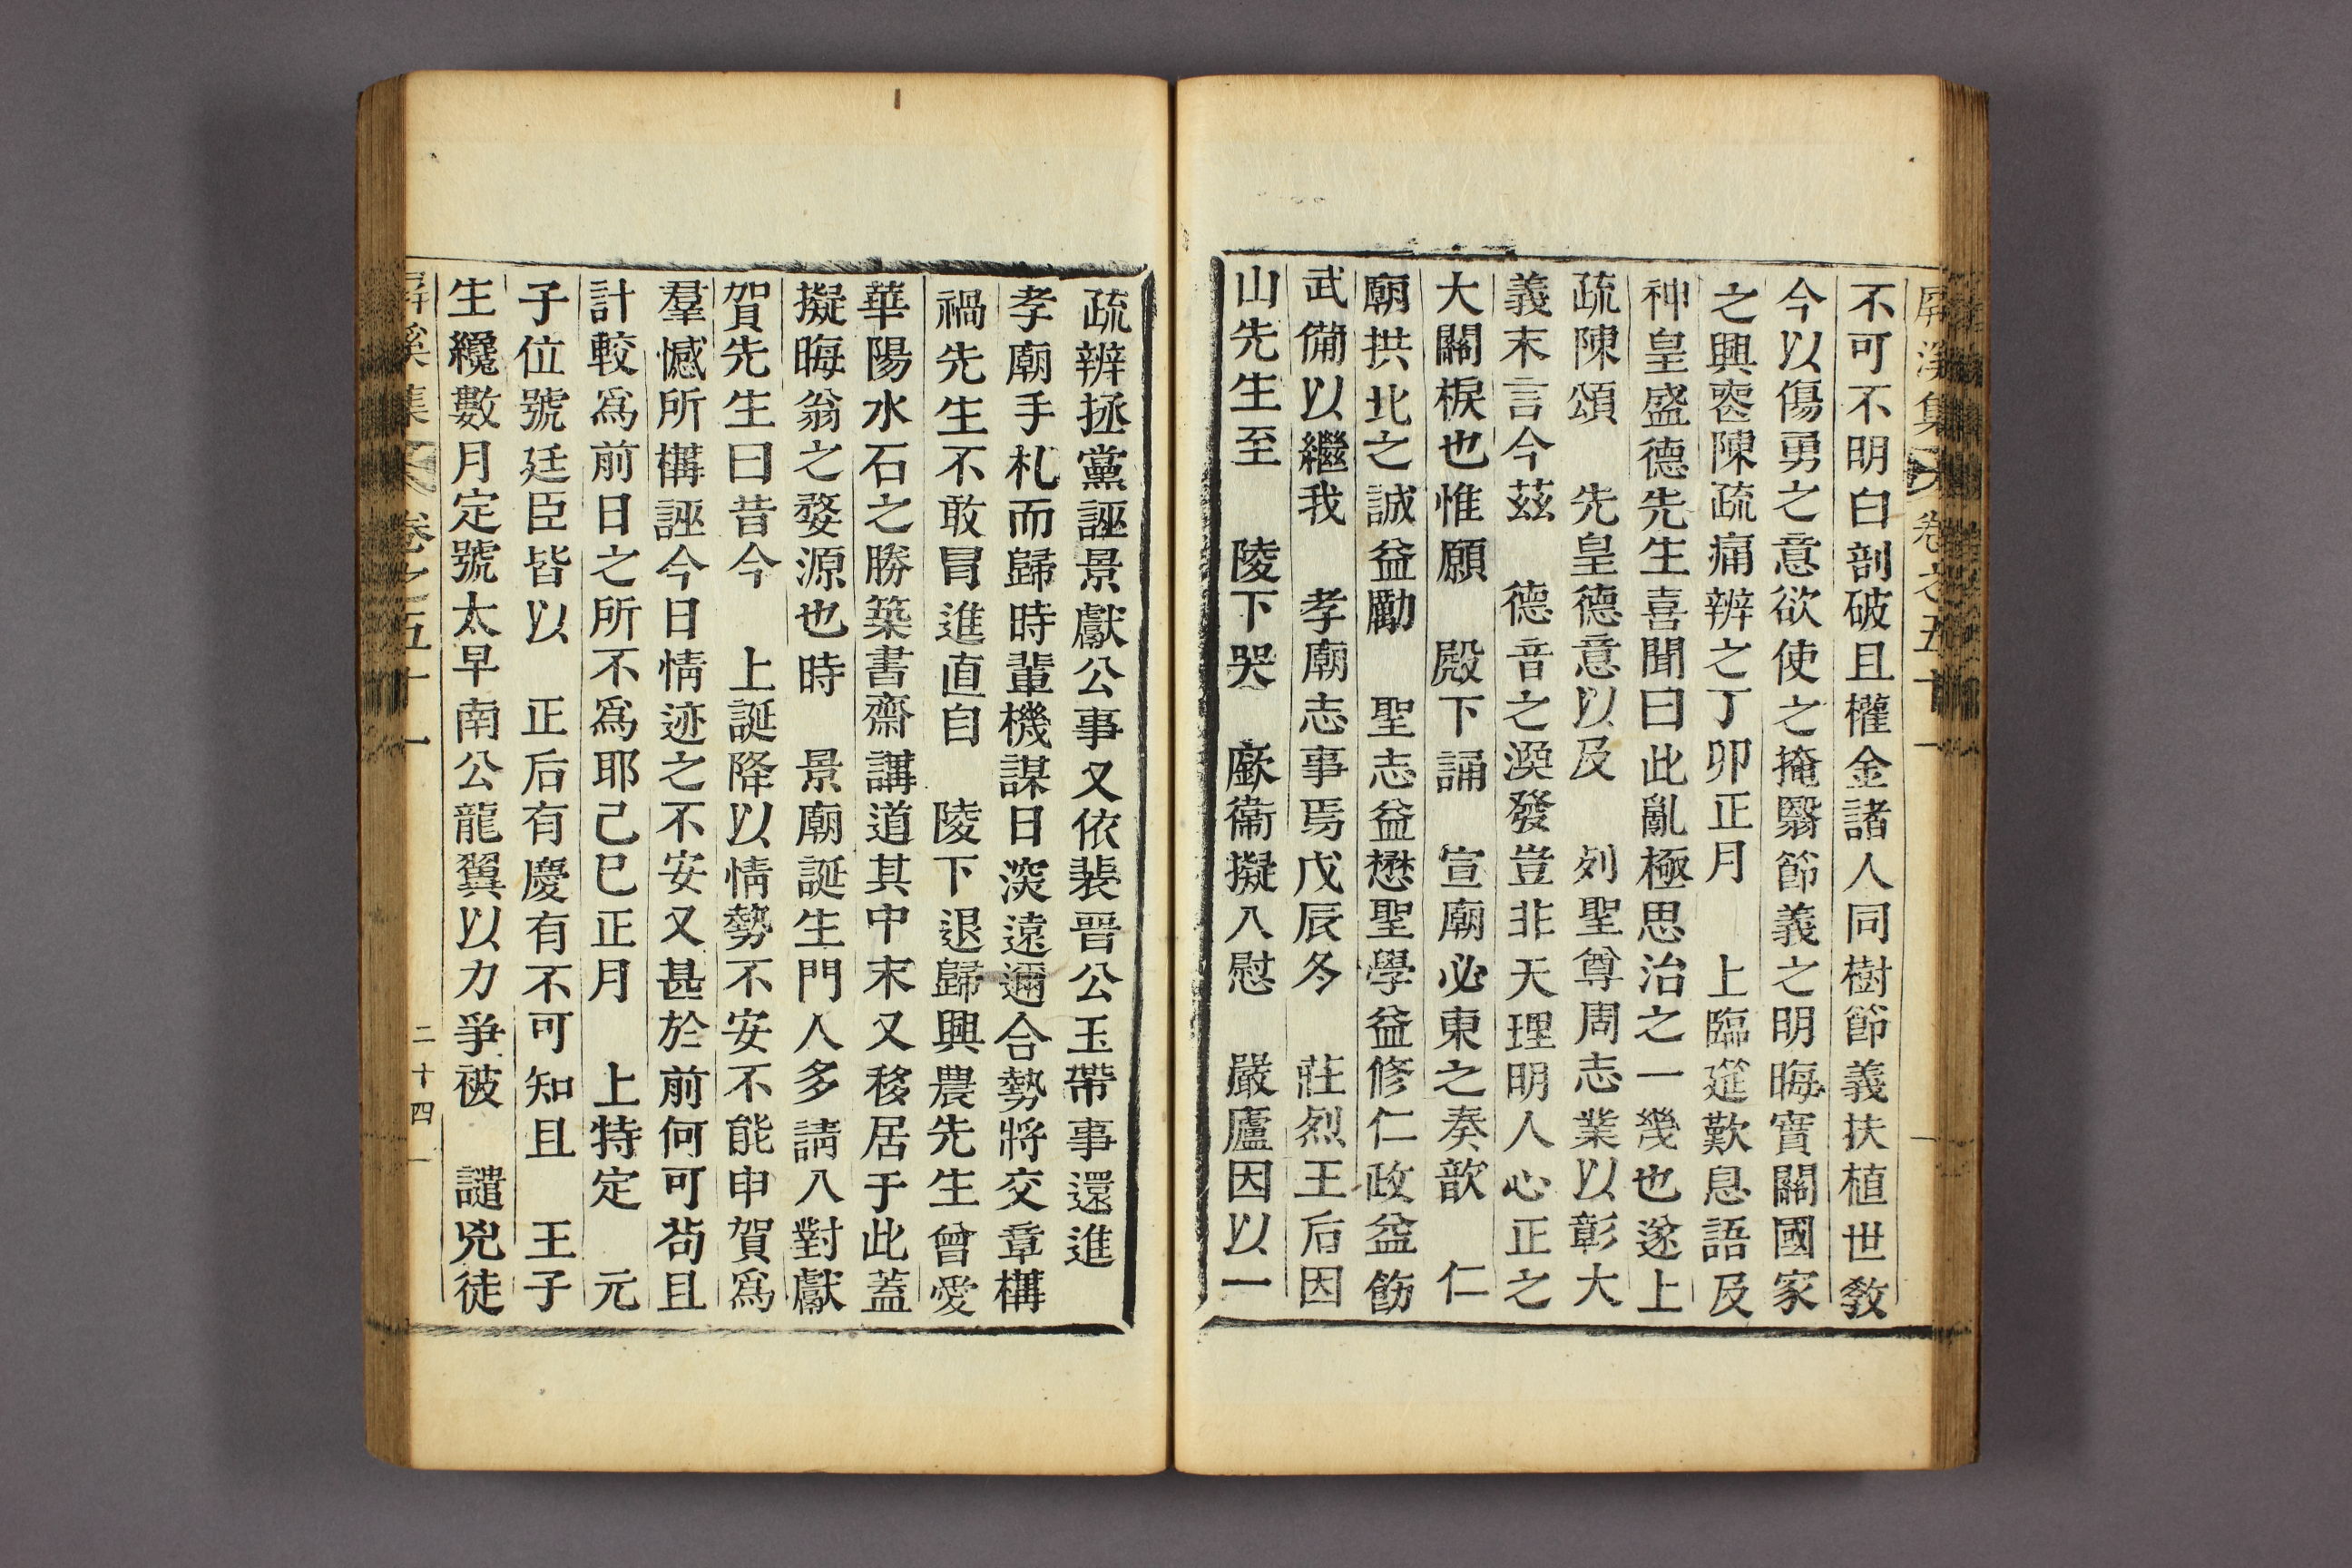 屛溪集 卷之五十一
不可不明白剖破且權金諸人同樹節義扶植世敎
今以傷勇之意欲使之掩翳節義之明晦實關國家
之興喪陳疏痛辨之丁卯正月 上臨筵歎息語及
神皇盛德先生喜聞曰此亂極思治之一幾也遂上
疏陳頌 先皇德意以及 列聖尊周志業以彰大
義末言今茲 德音之渙發豈非天理明人心正之
大關棙也惟願 殿下誦 宣廟必東之奏歆 仁
廟拱北之誠益勵 聖志益懋聖學益修仁政益飭
武備以繼我 孝廟志事焉戊辰冬 莊烈王后因
山先生至 陵下哭 廞衞擬入慰 嚴廬因以一
疏辨拯黨誣景獻公事又依裴晋公玉帶事還進
孝廟手札而歸時輩機謀日深遠邇合勢將交章構
禍先生不敢冒進直自 陵下退歸興農先生曾愛
華陽水石之勝築書齋講道其中末又移居于此蓋
擬晦翁之婺源也時 景廟誕生門人多請入對獻
賀先生曰昔今 上誕降以情勢不安不能申賀爲
羣憾所構誣今日情迹之不安又甚於前何可苟且
計較爲前日之所不爲耶己巳正月 上特定 元
子位號廷臣皆以 正后有慶有不可知且 王子
生纔數月定號太早南公龍翼以力爭被 譴兇徒
屛溪集 卷之五十一 二十四